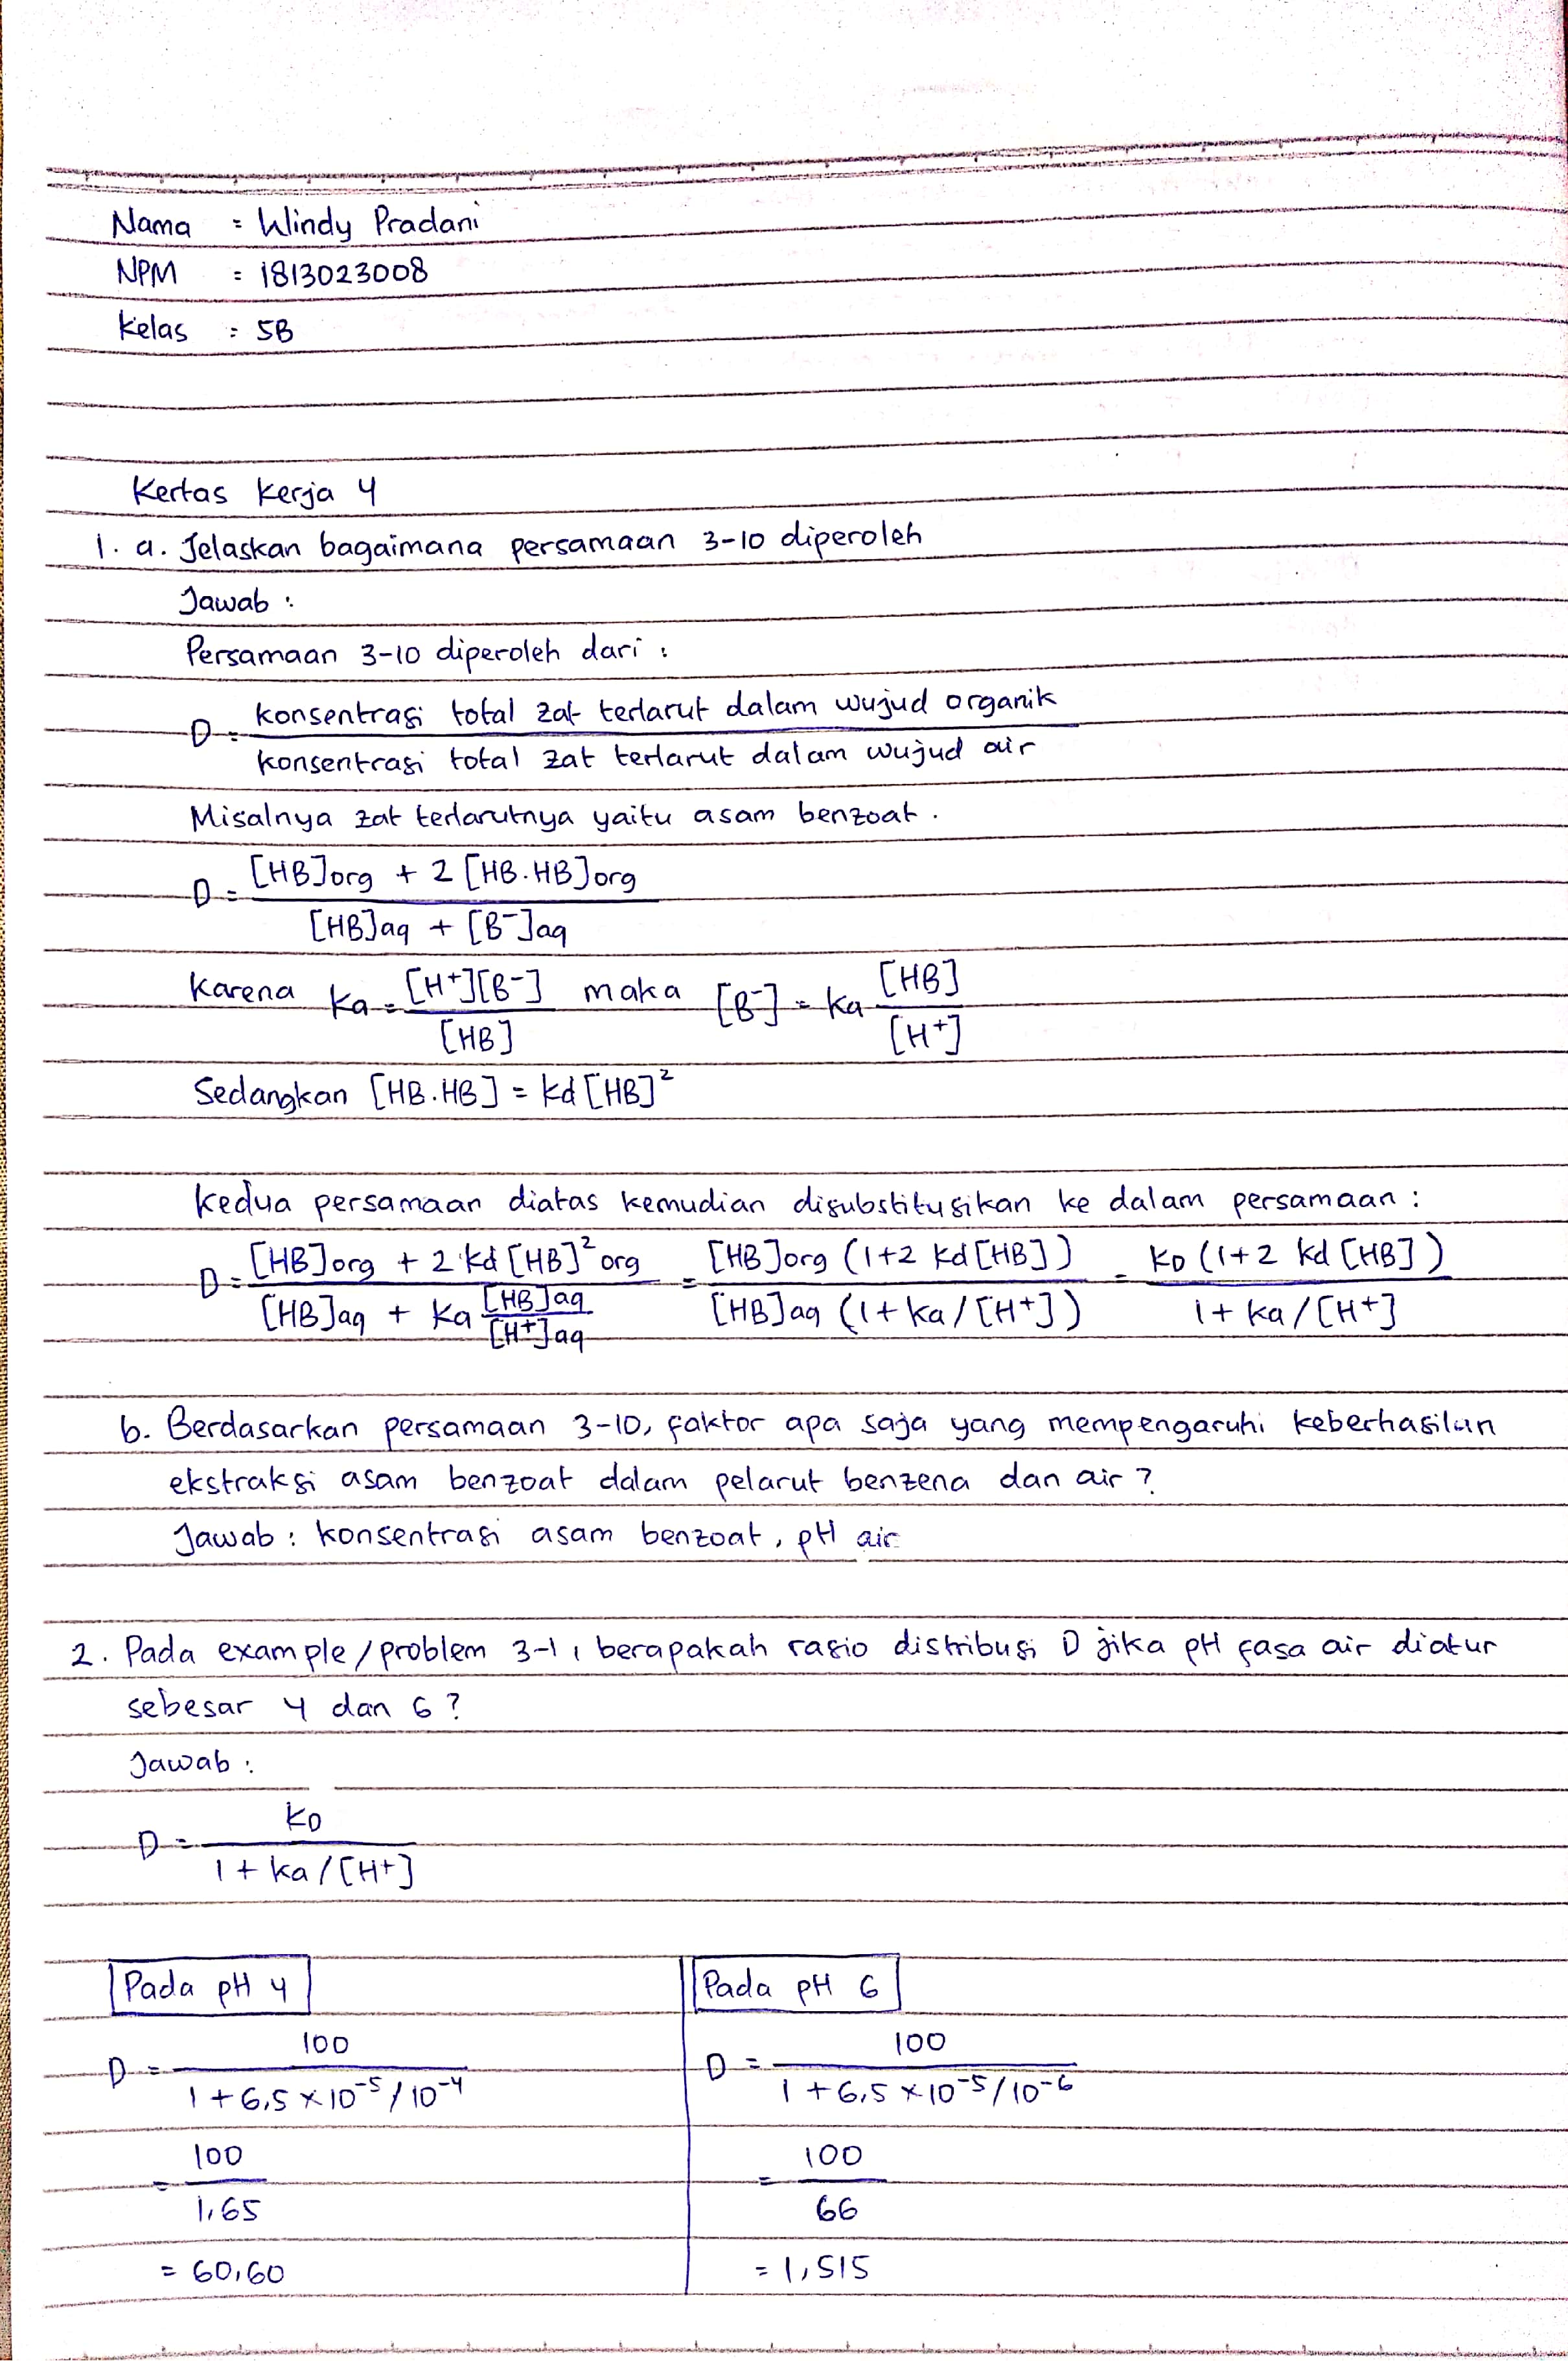 Nama : Windy Pradani
NPM : 1813023008
Kelas : 5B
Kertas Kerja 4
1. a. Jelaskan bagaimana persamaan 3-10 diperoleh
Jawab :
Persamaan 3-10 diperoleh dari :
D = konsentrasi total zat terlarut dalam wujud organik / konsentrasi total zat terlarut dalam wujud air
Misalnya zat terlarutnya yaitu asam benzoat .
D = [HB]org + 2 [HB.HB]org / [HB]aq + [B⁻]aq
Karena Ka = [H⁺][B⁻] / [HB] maka [B⁻] = Ka [HB] / [H⁺]
Sedangkan [HB.HB] = Kd [HB]²
Kedua persamaan diatas kemudian disubstitusikan ke dalam persamaan :
D = [HB]org + 2 Kd [HB]² org / [HB]aq + Ka [HB]aq / [H⁺]aq = [HB]org (1+2 Kd [HB]) / [HB]aq (1+ Ka / [H⁺]) = KD (1+2 Kd [HB]) / 1+ Ka / [H⁺]
b. Berdasarkan persamaan 3-10, faktor apa saja yang mempengaruhi keberhasilan
ekstraksi asam benzoat dalam pelarut benzena dan air ?
Jawab : konsentrasi asam benzoat , pH air
2. Pada example / problem 3-1, berapakah rasio distribusi D jika pH fasa air diatur
sebesar 4 dan 6 ?
Jawab :
D = KD / 1 + Ka / [H⁺]
Pada pH 4
D = 100 / 1 + 6,5 × 10⁻⁵ / 10⁻⁴
= 100 / 1,65
= 60,60
Pada pH 6
D = 100 / 1 + 6,5 × 10⁻⁵ / 10⁻⁶
= 100 / 66
= 1,515